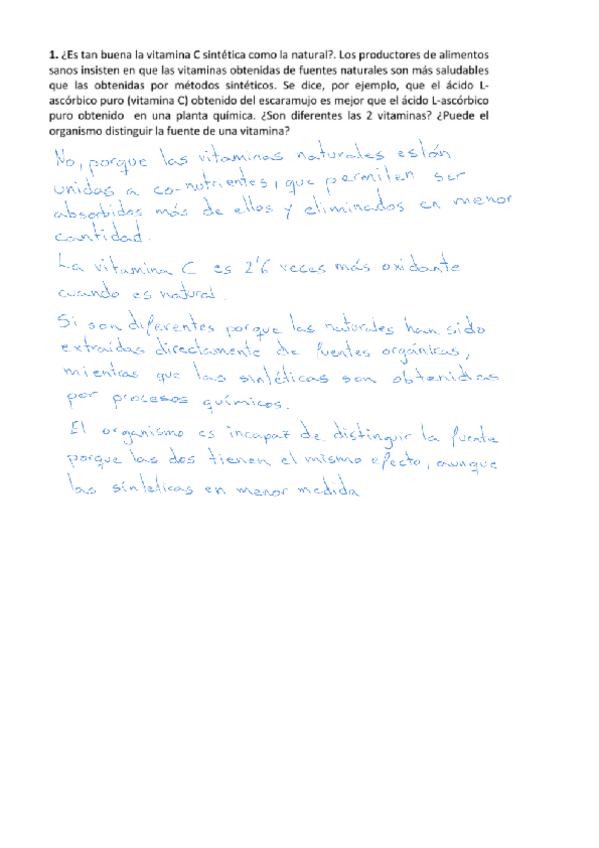 1. ¿Es tan buena la vitamina C sintética como la natural?. Los productores de alimentos
sanos insisten en que las vitaminas obtenidas de fuentes naturales son más saludables
que las obtenidas por métodos sintéticos. Se dice, por ejemplo, que el ácido L-
ascórbico puro (vitamina C) obtenido del escaramujo es mejor que el ácido L-ascórbico
puro obtenido en una planta química. ¿Son diferentes las 2 vitaminas? ¿Puede el
organismo distinguir la fuente de una vitamina?
No, porque las vitaminas naturales están
unidas a co-nutrientes, que permiten ser
absorbidos más de ellos y eliminados en menor
cantidad.
La vitamina C es 2'6 veces más oxidante
cuando es natural.
Si son diferentes porque las naturales han sido
extraidas directamente de fuentes orgánicas,
mientras que las sintéticas son obtenidas
por procesos químicos.
El organismo es incapaz de distinguir la fuente
porque las dos tienen el mismo efecto, aunque
las sintéticas en menor medida